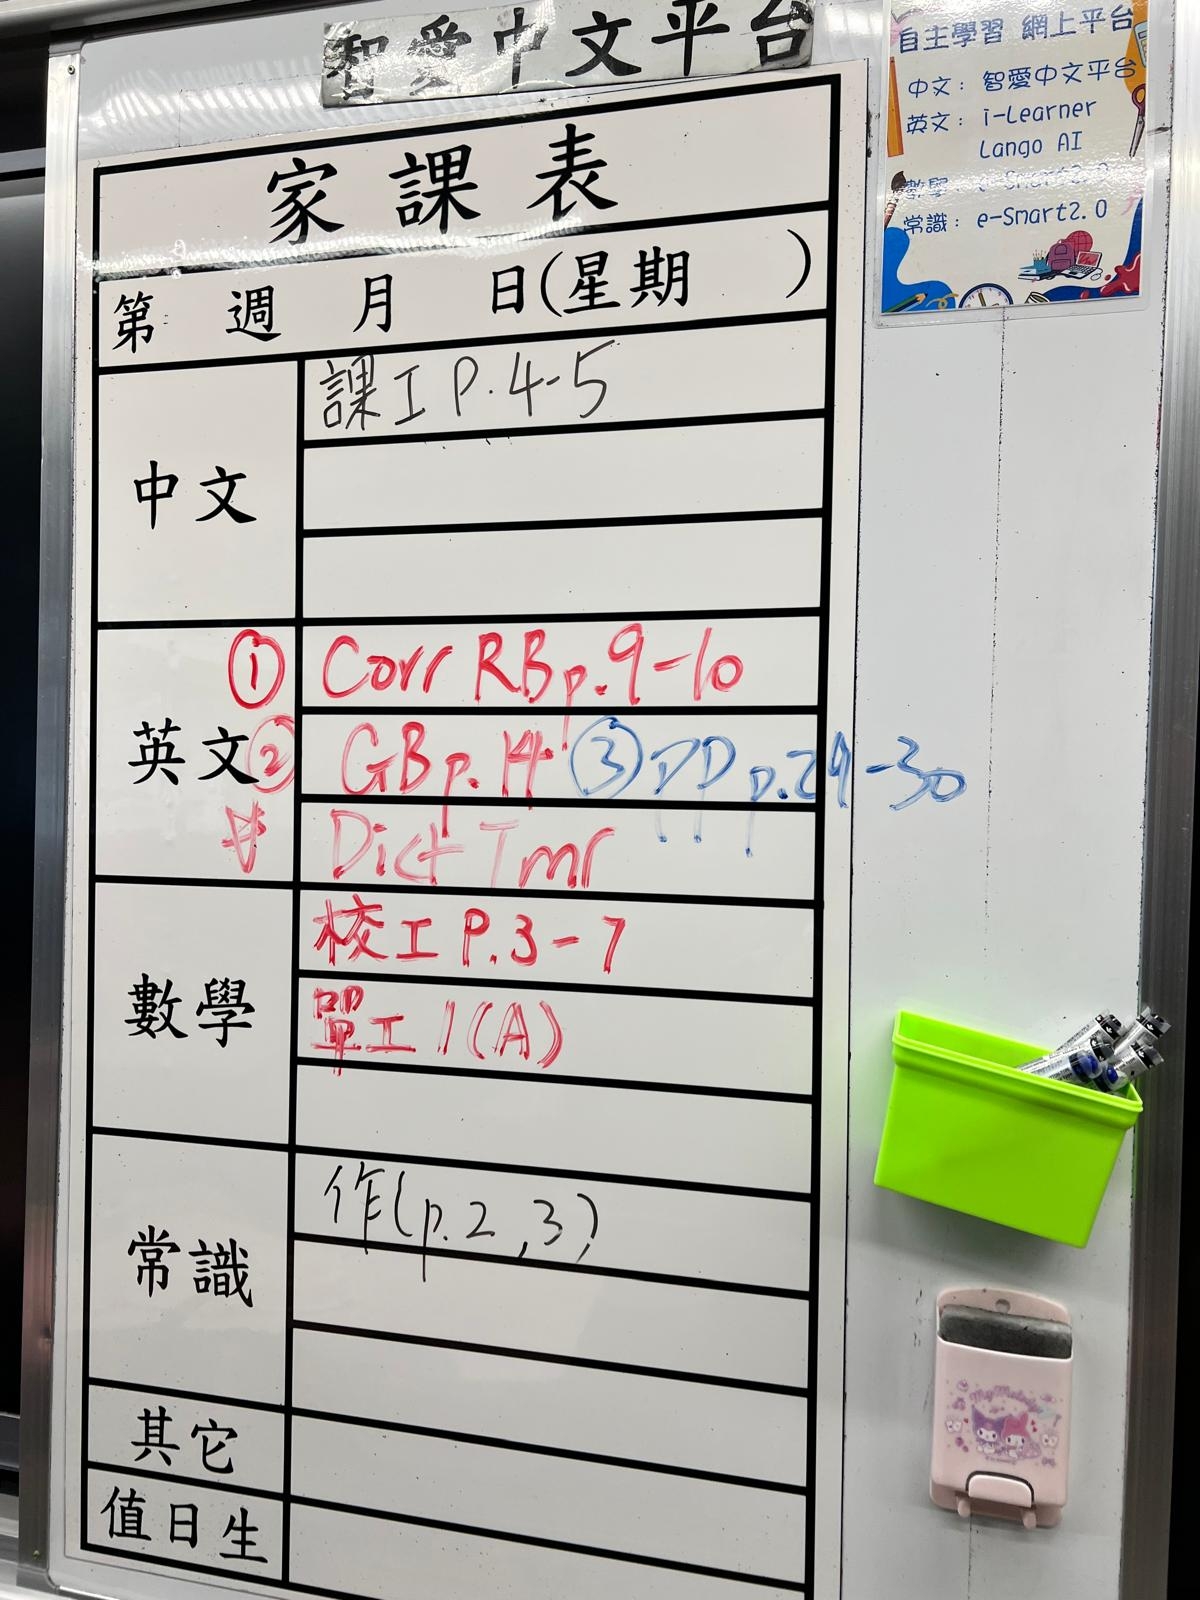 智愛中文平台
自主學習 網上平台
中文： 智愛中文平台
英文： i-Learner
Lango AI
數學： e-Smart2.0
常識： e-Smart2.0
家課表
第 週 月 日(星期 )
中文
課工 P.4-5
英文
① Corr RB p.9-10
② GB p.14 ③ PP p.29-30
Dict Tmr
數學
校工 P.3-7
單工 1(A)
常識
作(p.2,3)
其它
值日生
My Melody